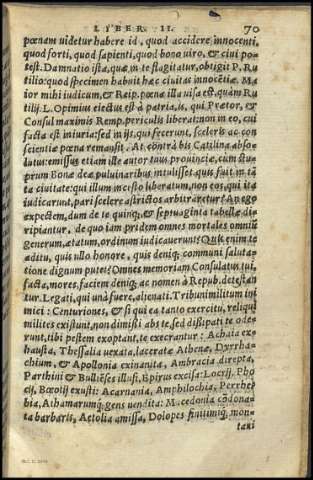 LIBER II. 70
pœnam uidetur habere id, quod accidere innocenti,
quod forti, quod sapienti, quod bono uiro, & ciui potest.
Damnatio ista, quæ in te flagitatur, obtigit P. Rutilio:
quod specimen habuit hæc ciuitas innocētiæ. Maior
mihi iudicum, & Reip. pœna illa uisa est, quàm Rutilij.
L. Opimius eiectus est è patria, is, qui Prætor, &
Consul maximis Remp. periculis liberat: non in eo, cui
facta est iniuria: sed in ijs, qui fecerunt, sceleris ac conscientiæ
pœna remansit. At contrà bis Catilina absolutus:
emissus etiam ille autor tuus prouinciæ, cum stuprum
Bonæ deæ puluinaribus intulisset. quis fuit in tāta
ciuitate: qui illum incesto liberatum, non eos, qui ita
iudicarunt, pari scelere astrictos arbitraretur? An ego
expectem, dum de te quinq; & septuaginta tabellæ diripiantur.
de quo iam pridem omnes mortales omniū
generum, ætatum, ordinum iudicauerunt? Quis enim te
aditu, quis ullo honore, quis deniq; communi salutatione
dignum putet? Omnes memoriam Consulatus tui,
facta, mores, faciem deniq; ac nomen à Repub. detestantur.
Legati, qui unà fuere, alienati. Tribuni militum inimici:
Centuriones, & si qui ex tanto exercitu, reliqui
milites existunt, non dimissi abs te, sed dissipati te oderunt,
tibi pestem exoptant, te execrantur: Achaia exhausta,
Thessalia uexata, laceratæ Athenæ, Dyrrhachium,
& Apollonia exinanita, Ambracia direpta,
Parthini & Bulliēses illusi, Epirus excisa: Locrij, Phocij,
Bœotij exusti: Acarnania, Amphilochia, Perrhebia,
Athamanumq; gens uendita: Macedonia cōdonata
barbaris, Aetolia amissa, Dolopes finitimiq; montani